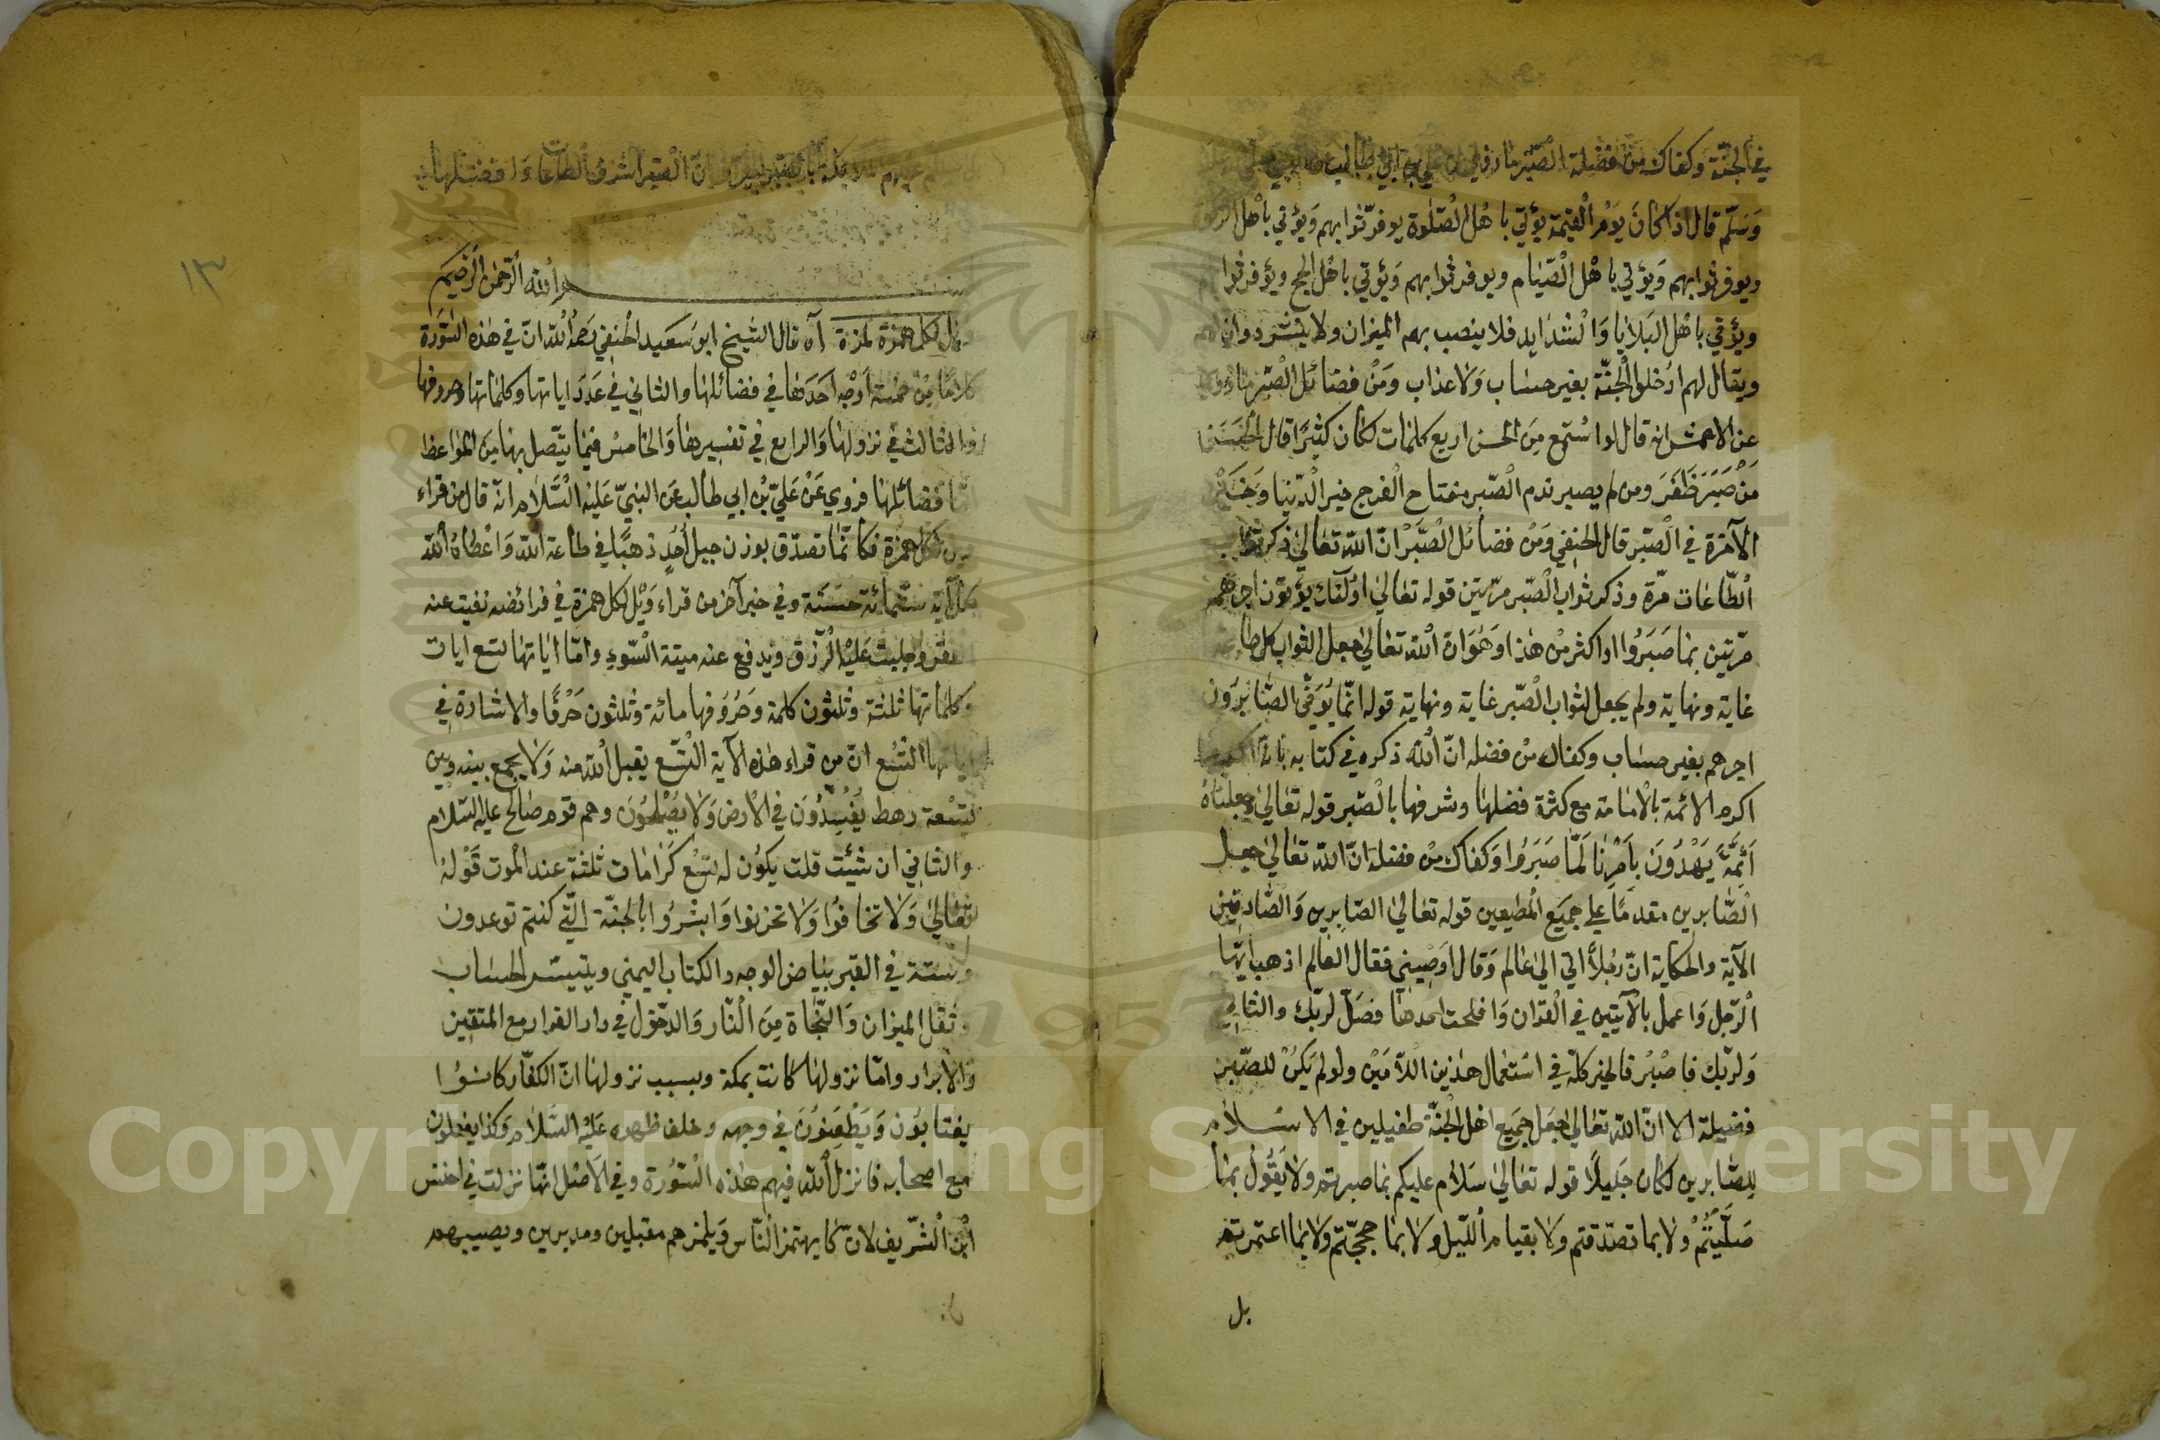 في الجنّة وكفاك من فضيلة الصّبر ما روي عن علي بن ابي طالب
وَسَلّم قال اذا كانَ يَوْمُ الْقيٰمة يؤتي باهْل الصّلٰوة يوفرّثوابهم وَيؤتي باهْل
ويوفرثوابهم وَيؤتي باهْل الصّيام ويوفرثوابهم وَيؤتي باهْل الحج ويؤفرثوا
ويؤتي باهْل البَلايا وَالْشدَايد فلا ينصب بهم الميزان ولا ينشر دوان لهم
ويقال لهم ادُخلوا الْجنّة بغير حسَاب وَلا عذاب وَمنْ فضائل الصّبر ما روي
عن الاعمش انه قال لو اسْتمع مِنَ الحسن اربع كلمات لكان كثيرًا قال الحَسَن
مَنْ صَبَرَ ظَفَرَ ومن لم يصبر ندم الصّبر مفتاح الْفرج خير الدّنيا وَخير
الآخرة في الْصّبر قال الحنفي وَمنْ فضائل الصَّبْر انّ اللّه تعالي ذكر ثواب
الْطّاعات مّرة وذكر ثواب الصّبر مرّتين قوله تعالي اوُلئك يؤتون اجرهم
مرّتين بما صَبَرُوا او اكثر منْ هٰذا وَهُوَ انّ اللّه تعالي جعل الثواب كل طا
غاية ونهاية ولم يجعل لثواب الصّبر غاية ونهاية قوله انّما يُوَفّي الصّابرُون
اجرهم بغير حسَاب وكفاك منْ فضله انّ اللّه ذكره في كتابه بانه
اكرم الائمة بالامامة مع كثرة فضلها وشرفها بالصّبر قوله تعالي وجعلناهُ
اَئِمَّةً يَهْدُونَ بِاَمْرِنا لَمّا صَبَرُوا وَكفاك منْ فضله انّ اللّه تعالي جعل
الصّابرين مقدمًا علي جميَع المطيعين قوله تعالي الصّابرين وَالصّادقين
الآية والحكاية انّ رجُلاً اتي الي عالم وَقال اوَصِيني فقال العالم اذهب ايّها
الرّجل وَاعمل بالآيتين في الْقران وَافلحت احدهما فصَلّ لربّك والثاني
وَلربّك فاصْبرْ فالخير كلّه في اسْتعمال هٰذين الْلاّمَيْن ولو لم يَكنْ للصّبر
فضيلة الا انّ اللّه تعالي جعل جميَع اهْل الجنّة طفيلين في الاسْلام
للصّابرين لكان جَليلاً قوله تعالي سَلام عليكم بما صبرتم ولا يقُولُ بما
صَلَّيْتُمْ وْلا بما تصدّقتم ولا بقيام اللّيل ولا بما حججّتم ولا بما اعتمرتم
بل
انّ الْصّبر اشرف الطاعات وَافضلها
اللّه الرّحمن الرّحيم
ويل لكل همَزة لمزة آه قال الشيخ ابو سَعيد الحنفي رَحمه اللّه انّ في هذه السّورَة
كلامًا منْ خمسة اَوْجه اَحَدَها في فضائلها والثاني في عَدَد اياتها وكلماتها وحروفها
والثالث في نزولها وَالرابع في تفسيرها وَالخامسْ فيما يتّصل بها مِنَ المواعظ
امّا فضائلها فروي عَنْ عَليّ بْن ابي طالب عَن النبيّ عَليْه الْسَّلام انّه قال من قراء
ويل لكل همزة فكأنّما تصدّق بوزن جبل اُحُدٍ ذهبًا في طاعة اللّه وَاعْطاهُ اللّه
بكل آية ستمائة حسَنَة وفي خبر آخر من قراء وَيْل لكل همزة في فرائضه نفيت عنه
الفقر وجلبت عَليْه الرّزق ويدفع عنه ميتة السّوءِ وامّا اياتها تسع ايات
وكلماتها ثلثة وثلثون كلمة وَحرُوفها مائة وثلثون حَرْفًا والاشارة في
اياتها التسْع انّ من قراء هذه الآية التّسْع يقبل اللّه منه وَلا يجمع بينه وبين
تِسْعة رهط يُفْسِدُونَ في الارض وَلا يصُلحُون وهم قوم صَالح عليه السّلام
والثاني ان شئت قلت يكوُن له تسْع كَرَامات ثلثة عند الموت قَوْله
تعالي وَلا تخافوُا وَلا تحزنوا وَابشرُوا بالجنّة الّتي كنتم توعدون
وستة في القبر بياض الوجه والكتاب اليمني ويتيسّر الحسَاب
وثقل الميزان وَالنّجاة مِنَ الْنّار وَالدخول في دار القرار مع المتقين
وَالابرار وامّا نزولها كانت بمكة وبسبب نزولها انّ الكفّار كانوُا
يغتابوُن وَيَطْعنوُنَ في وجهه وخلف ظهره عَليْه السَّلام وكذا يفعلون
مع اصحابه فانزل اللّه فيهم هٰذه السّوُرة وفي الاَصْل انّها نزلت في اخنس
ابْن الْشّريف لانّه كا يهتمز النّاس وَيلمزهم مقبلين ومدبرين ويصيبهم
١٣